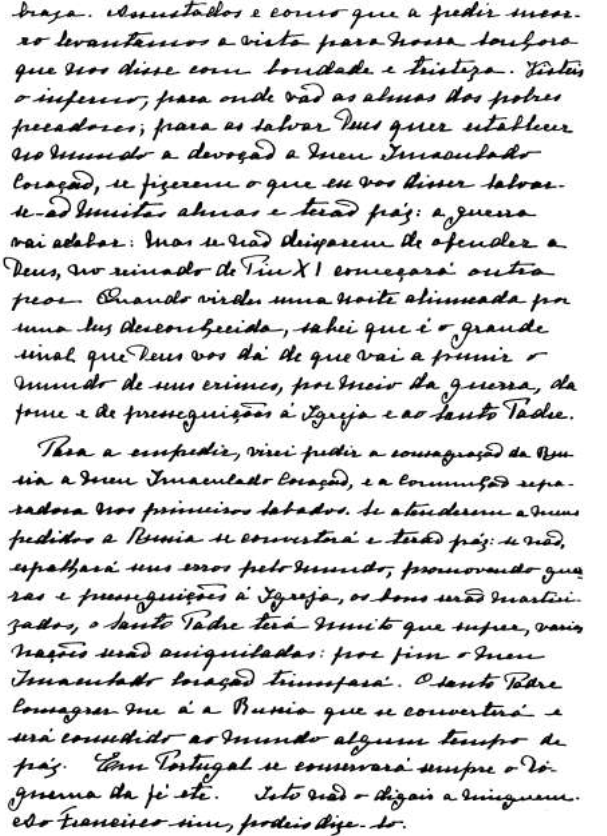 braza. Assustados e como que a pedir socor-
ro levantamos a vista para Nossa Senhora
que nos disse com bondade e tristeza. Visteis
o inferno, para onde vão as almas dos pobres
pecadores; para as salvar Deus quer establecer
no mundo a devoção a meu Imaculado
Coração, se fizerem o que eu vos disser salvar-
se-ão muitas almas e terão páz: a guerra
vai acabar: mas se não deixarem de ofender a
Deus, no reinado de Pio XI começará outra
peor. Quando virdes uma noite alumeada por
uma luz desconhecida, sabei que é o grande
sinal que Deus vos dá de que vai a punir o
mundo de seus crimes, por meio da guerra, da
fome e de presseguições á Igreja e ao Santo Padre.
Para a empedir, virei pedir a consagração da Rus-
sia a meu Imaculado Coração, e a Comunhão repa-
radora nos primeiros sabados. Se atenderem a meus
pedidos a Russia se converterá e terão páz: se não,
espalhará seus erros pelo mundo, promovendo guer-
ras e presseguições á Igreja, os bons serão martiri-
zados, o Santo Padre terá muito que sufrer, varias
nações serão aniquiladas: por fim o meu
Imaculado Coração triunfará. O Santo Padre
Consagrar-me á a Russia que se converterá e
será consedido ao mundo algum tempo de
páz. Em Portugal se conservará sempre o
da fé etc. Isto não o digais a ninguem.
Ao Francisco sim, podeis dize-lo.